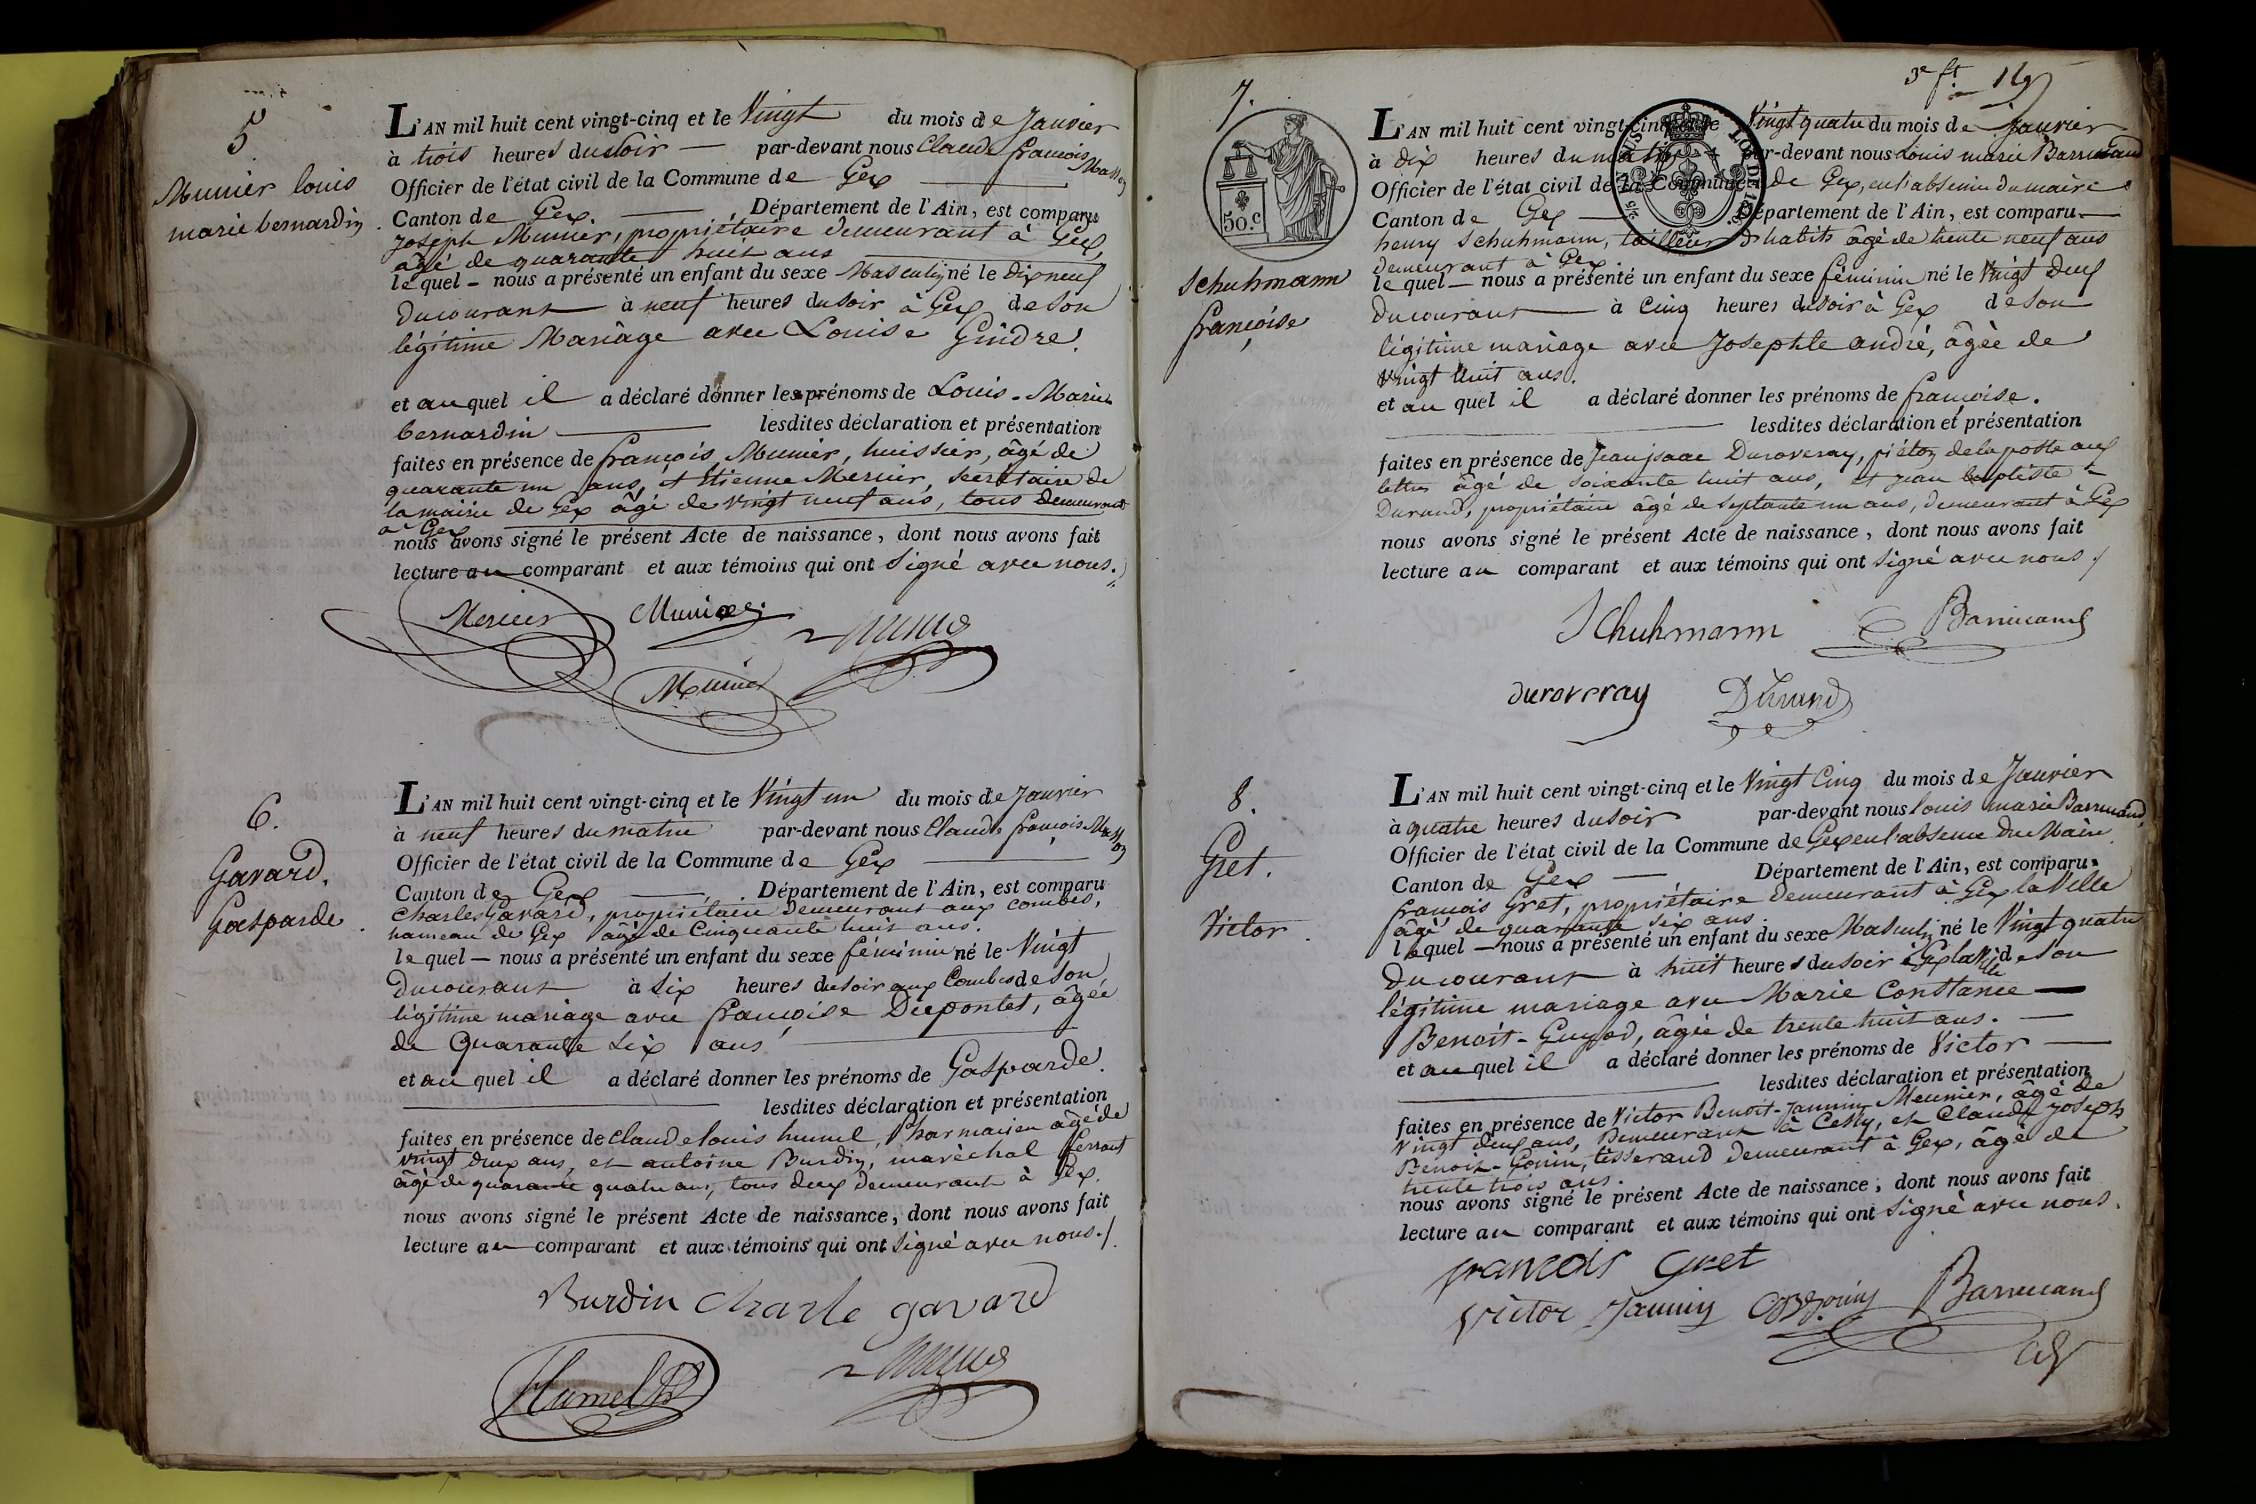 5
Munier louis
marie bernardin
L'AN mil huit cent vingt-cinq et le Vingt du mois de Janvier
à trois heures du soir — par-devant nous Claude françois
Officier de l'état civil de la Commune de Gex
Canton de Gex. — Département de l'Ain, est comparu
Joseph Munier, propriétaire demeurant à Gex,
âgé de quarante huit ans
lequel — nous a présenté un enfant du sexe Masculin né le dixneuf
du courant à neuf heures du soir à Gex de son
légitime Mariage avec Louise Gindre.
et au quel il a déclaré donner les prénoms de Louis-Marie
bernardin — lesdites déclaration et présentation
faites en présence de françois Munier, huissier, âgé de
quarante un ans, et Etienne Mercier, secrétaire de
la mairie de Gex âgé de vingt neuf ans, tous demeurant
à Gex
nous avons signé le présent Acte de naissance, dont nous avons fait
lecture au comparant et aux témoins qui ont signé avec nous.
Mercier Munier
Munier
6.
Gavard.
Gasparde.
L'AN mil huit cent vingt-cinq et le Vingt un du mois de Janvier
à neuf heures du matin par-devant nous Claude françois
Officier de l'état civil de la Commune de Gex
Canton de Gex — Département de l'Ain, est comparu
Charles Gavard, propriétaire demeurant aux combes,
hameau de Gex âgé de Cinquante huit ans.
lequel — nous a présenté un enfant du sexe féminin né le Vingt
du courant à six heures du soir aux Combes de son
légitime mariage avec françoise Dupontet, âgée
de Quarante six ans
et au quel il a déclaré donner les prénoms de Gasparde.
lesdites déclaration et présentation
faites en présence de Claude louis humel, Pharmacien âgé de
vingt deux ans, et antoine Burdin, maréchal ferrant
âgé de quarante quatre ans, tous deux demeurant à Gex.
nous avons signé le présent Acte de naissance, dont nous avons fait
lecture au comparant et aux témoins qui ont signé avec nous./.
Burdin Charle gavard
Humel
7.
50.c
schuhmann
françoise
L'AN mil huit cent vingt-cinq et le Vingt quatre du mois de janvier
à dix heures du matin par-devant nous Louis marie Barrucand
Officier de l'état civil de la Commune de Gex, en l'absence du maire
Canton de Gex — Département de l'Ain, est comparu
henry schuhmann, tailleur d'habits âgé de trente neuf ans
demeurant à Gex
lequel — nous a présenté un enfant du sexe féminin né le Vingt deux
du courant à Cinq heures du soir à Gex de son
légitime mariage avec Josephte andré, âgée de
vingt huit ans.
et au quel il a déclaré donner les prénoms de françoise.
lesdites déclaration et présentation
faites en présence de Jean jsaac Duroveray, piéton de la poste aux
lettres âgé de soixante huit ans, et jean baptiste
Durand, propriétaire âgé de septante un ans, demeurant à Gex
nous avons signé le présent Acte de naissance, dont nous avons fait
lecture au comparant et aux témoins qui ont signé avec nous./
Schuhmann Barrucand
duroveray Durand
8.
Gret.
Victor.
L'AN mil huit cent vingt-cinq et le Vingt Cinq du mois de Janvier
à quatre heures du soir par-devant nous louis marie Barrucand,
Officier de l'état civil de la Commune de Gex en l'absence du Maire
Canton de Gex — Département de l'Ain, est comparu
françois Gret, propriétaire demeurant à Gex la Ville
âgé de quarante six ans.
lequel — nous a présenté un enfant du sexe Masculin né le Vingt quatre
du courant à huit heures du soir à Gex la Ville de son
légitime mariage avec Marie Constance —
Benoit-Guyod, âgée de trente huit ans. —
et au quel il a déclaré donner les prénoms de Victor —
lesdites déclaration et présentation
faites en présence de Victor Benoit-Jannin Meunier, âgé de
vingt deux ans, demeurant à Cessy, et Claude joseph
Benoit-Gonin, tisserand demeurant à Gex, âgé de
trente trois ans.
nous avons signé le présent Acte de naissance, dont nous avons fait
lecture au comparant et aux témoins qui ont signé avec nous.
francois Gret
victor Jannin Barrucand